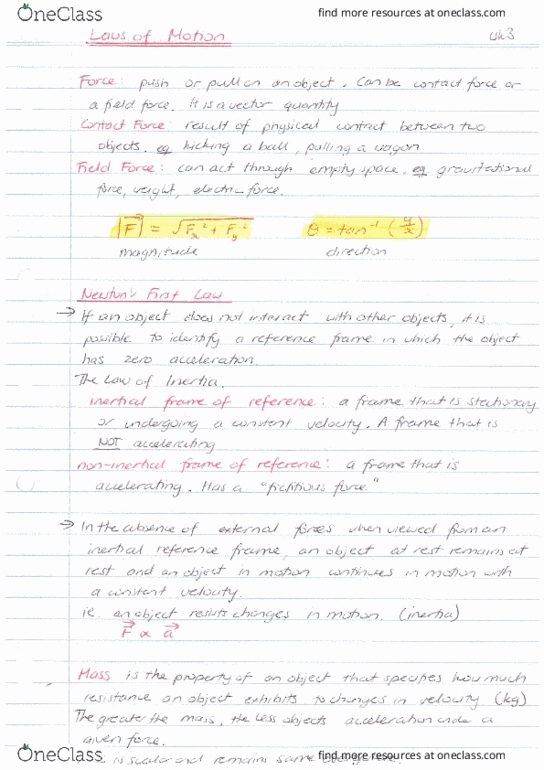 OneClass
find more resources at oneclass.com
Laws of Motion
Ch3
Force: push or pull on an object. Can be contact force or
a field force. It is a vector quantity
Contact Force: result of physical contact between two
objects. eg kicking a ball, pulling a wagon
Field Force: can act through empty space. eg. gravitational
force, weight, electric force.
|F⃗| = √Fx² + Fy²
θ = tan⁻¹ (y/x)
magnitude
direction
Newton's First Law
→ If an object does not interact with other objects, it is
possible to identify a reference frame in which the object
has zero acceleration.
The Law of Inertia.
inertial frame of reference: a frame that is stationary
or undergoing a constant velocity. A frame that is
NOT accelerating
non-inertial frame of reference: a frame that is
accelerating. Has a "fictitious force"
→ In the absence of external forces when viewed from an
inertial reference frame, an object at rest remains at
rest and an object in motion continues in motion with
a constant velocity.
ie. an object resists changes in motion. (inertia)
F⃗ ∝ a⃗
Mass is the property of an object that specifies how much
resistance an object exhibits to changes in velocity (kg)
The greater the mass, the less objects acceleration under a
given force.
is scalar and remains same
OneClass
find more resources at oneclass.com